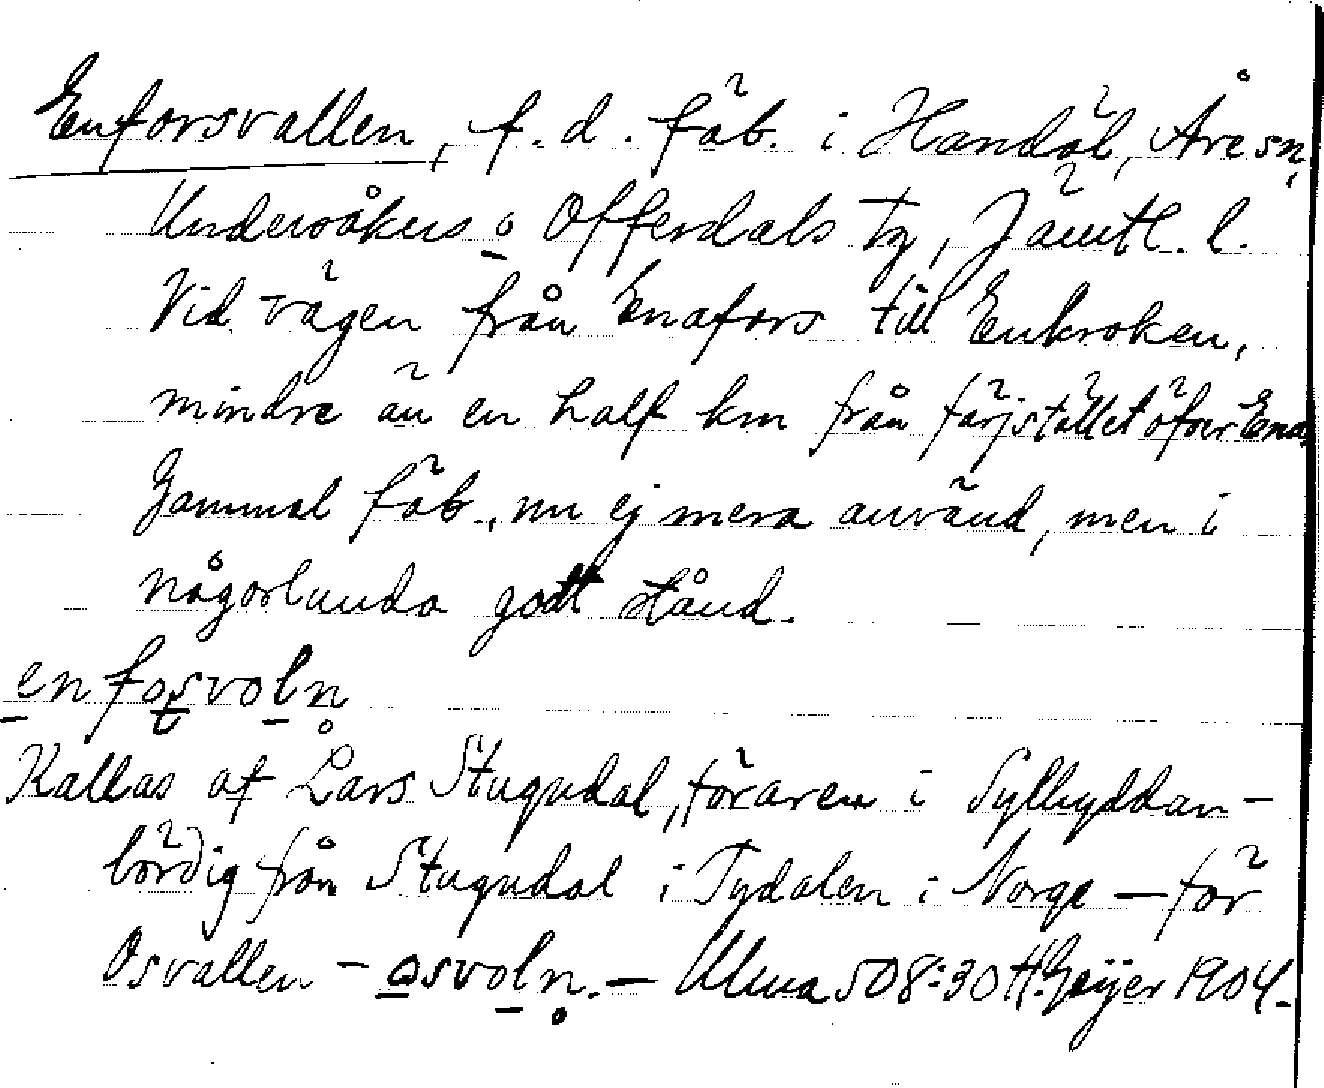 Enforsvallen, f. d. fäb. i Handöl, Åre sn,
Undersåkers o Offerdals tg, Jämtl. l.
Vid vägen från Enafors till Enkroken,
mindre än en half km från färjstället öfver Enan
Gammal fäb., nu ej mera använd, men i
någorlunda godt stånd.
enforsvoln
Kallas af Lars Stugudal, föraren i Sylhyddan –
bördig från Stugudal i Tydalen i Norge – för
Osvallen – osvoln. – Ulma 508:30 H. Geijer 1904.